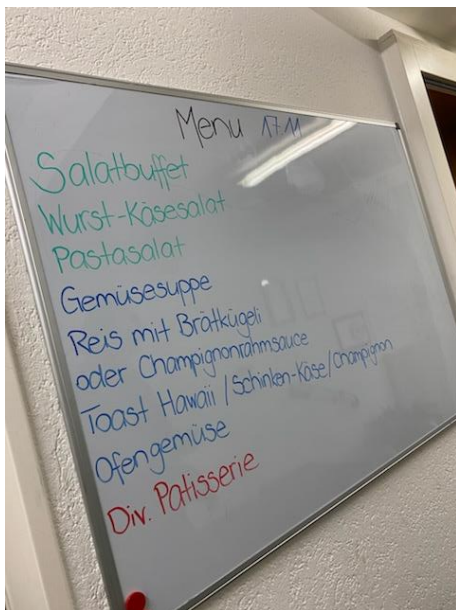 Menu 17.11
Salatbuffet
Wurst-Käsesalat
Pastasalat
Gemüsesuppe
Reis mit Brätkügeli
oder Champignonrahmsauce
Toast Hawaii / Schinken-Käse / Champignon
Ofengemüse
Div. Patisserie